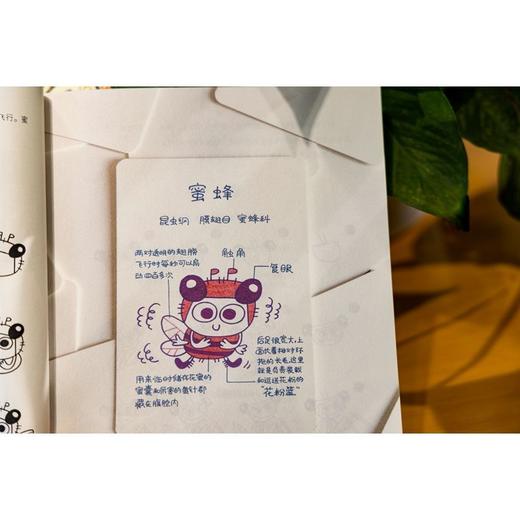 飞行。蜜
蜜蜂
昆虫纲 膜翅目 蜜蜂科
两对透明的翅膀
飞行时每秒可以扇
动四百多次
触角
复眼
后足很宽大,上
面长着相对环
抱的长毛这里
就是负责装载
和运送花粉的
"花粉篮"
用来临时储存花蜜的
蜜囊和厉害的螫针都
藏在腹腔内